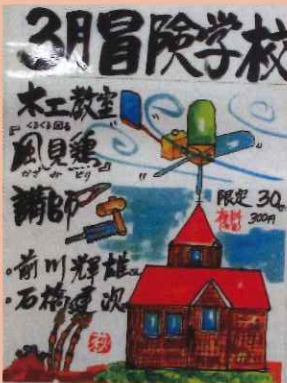 3月冒険学校
木工教室
『くるくる回る
風見鶏』
かざみどり
講師
・前川輝雄
・石橋建次
限定 30名
有料
300円